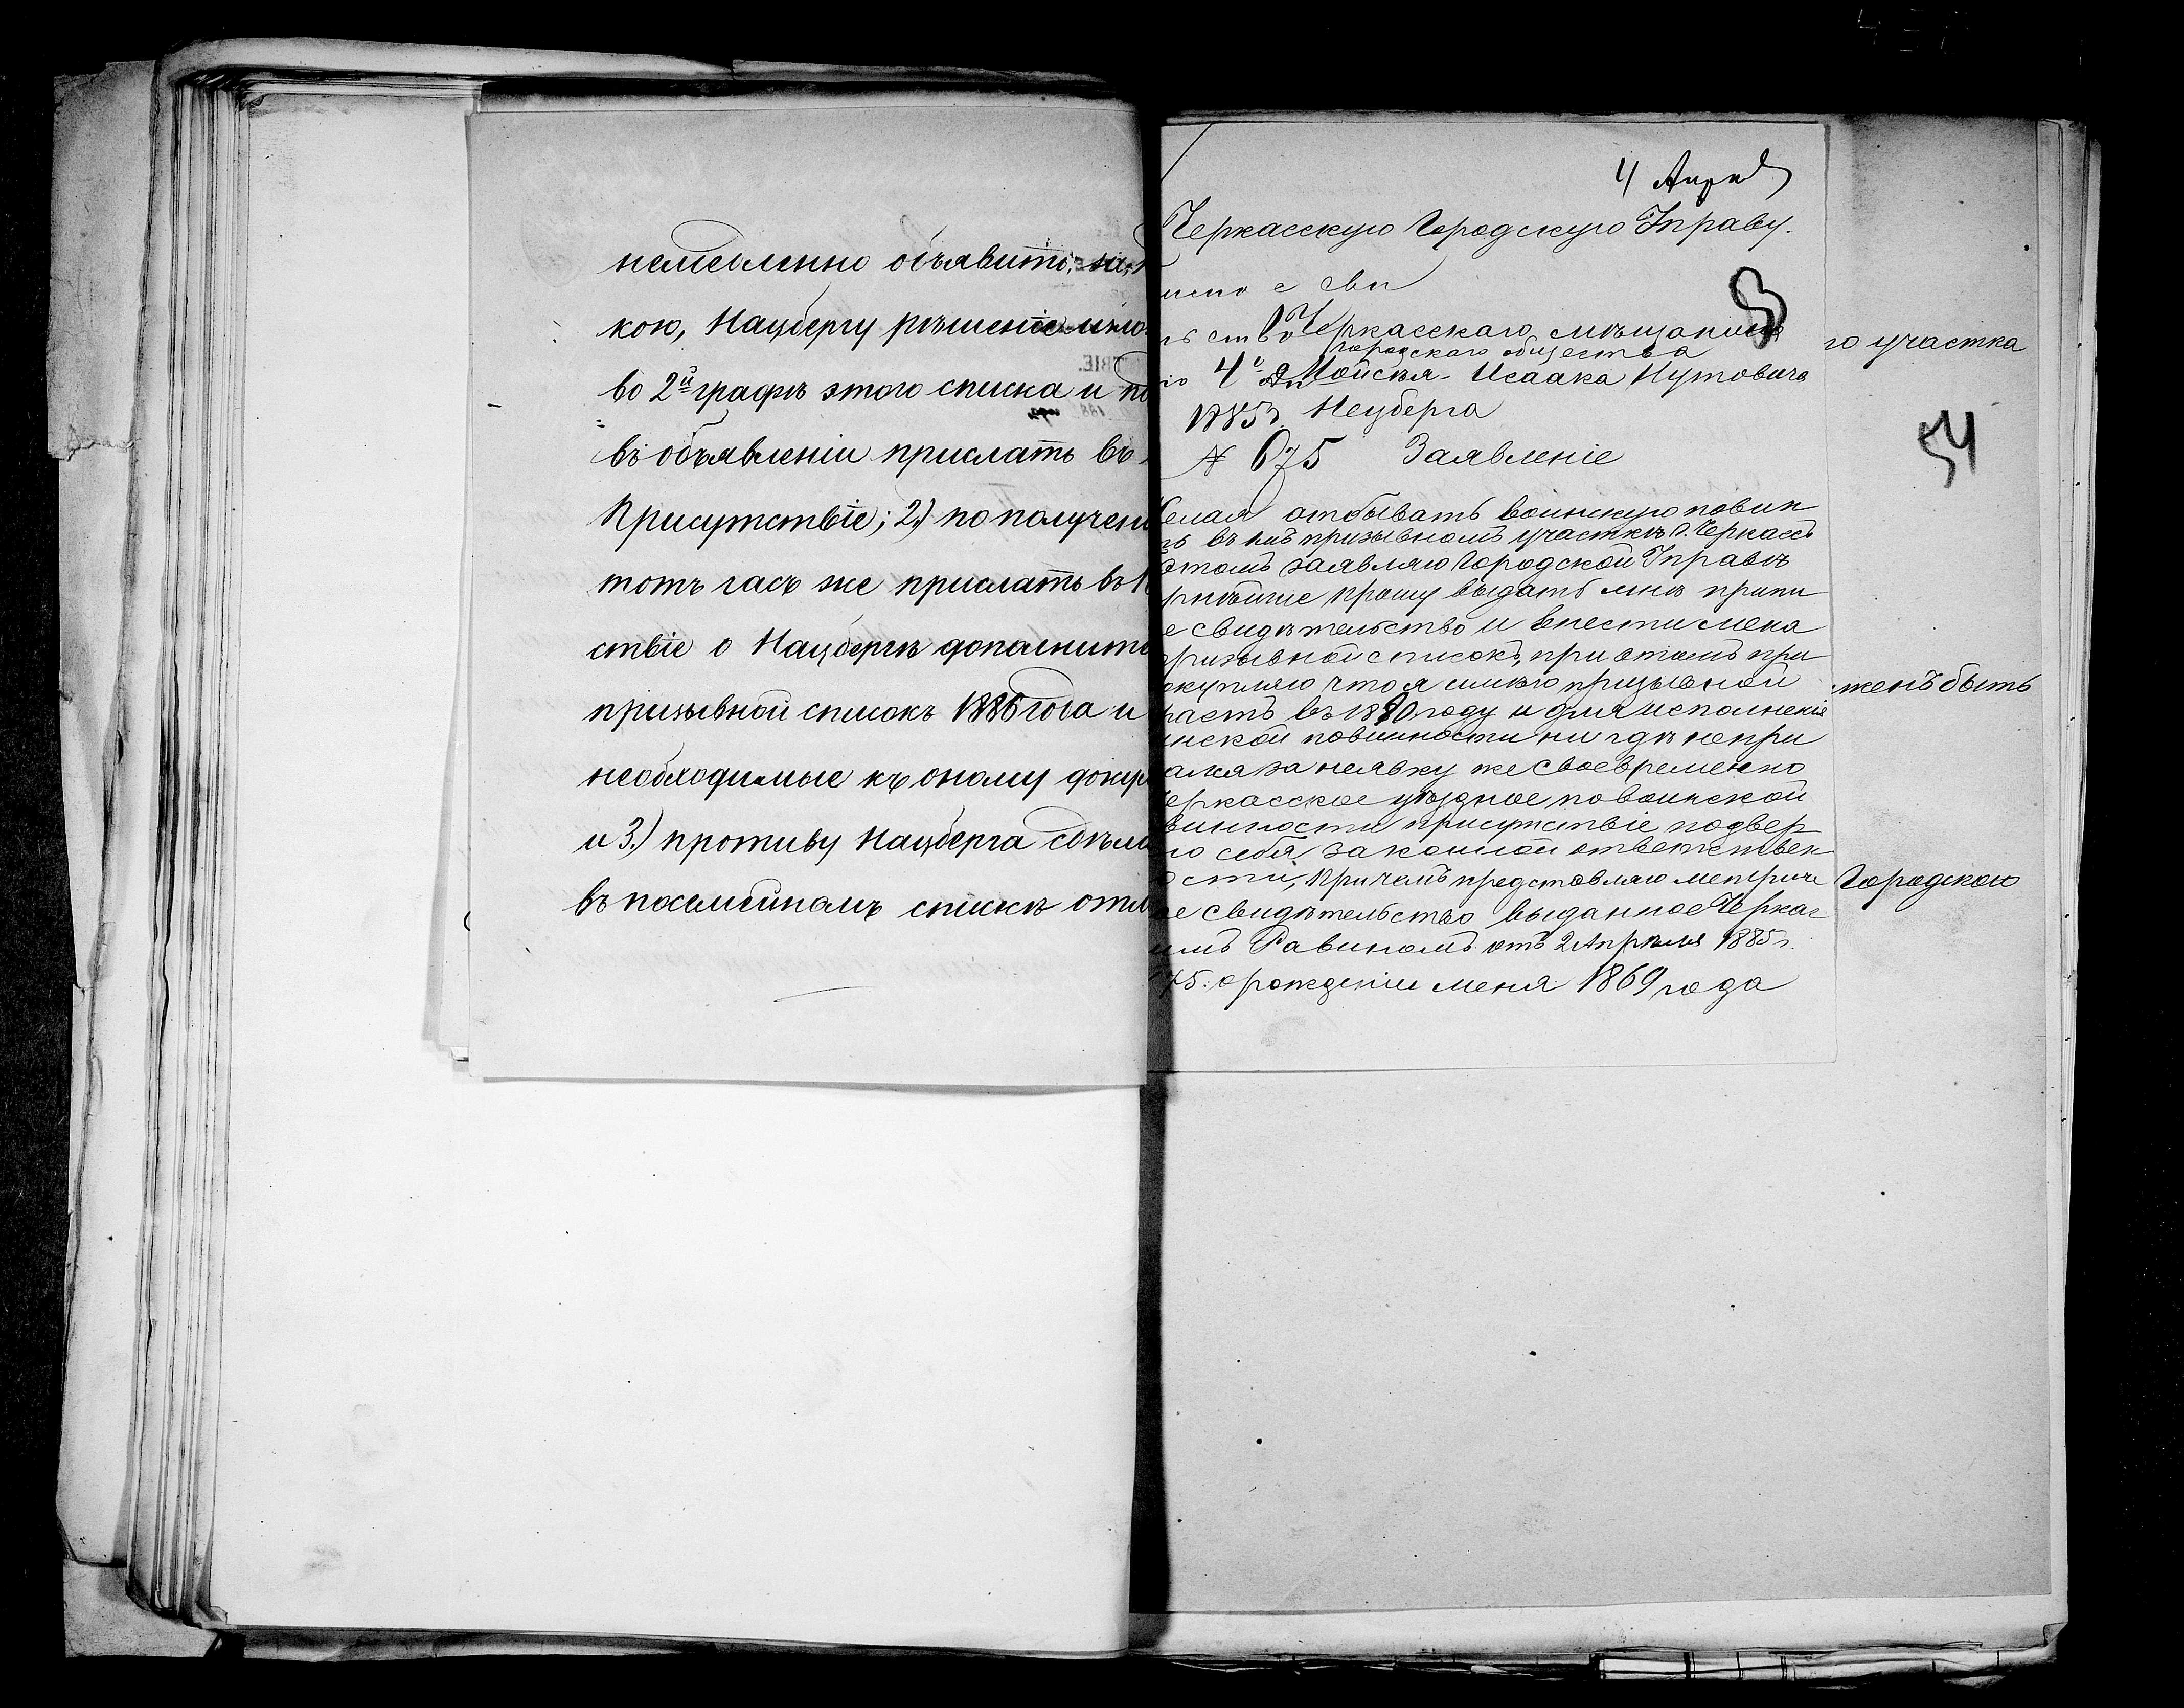 немедленно объявить, за
кою, Нацбергу рѣшеніе
во 2й графѣ этого списка и по
въ объявленіи прислать въ
Присутствіе; 2) по получені
тотъ часъ же прислать въ
ствіе о Нацбергѣ дополните
призывной списокъ 1886 года и
необходимые къ оному докум
и 3.) противу Нацберга сдѣла
въ посемейномъ спискѣ отм
4 Апрѣл
Черкасскую Городскую Управу.
Черкасскаго мѣщанина
городскаго общества
4го Мойсѣя-Исаака Нутовича
1885 г. Нецберга
№ 675 Заявленіе
елая отбывать воинскую повин
въ призывномъ участкѣ г. Черкассъ
этомъ заявляю Городской Управѣ
рнѣйше прошу выдать мнѣ припи
е свидѣтельство и внести меня
ризывной списокъ, при этомъ при
окупляю что я имѣю призывной
растъ въ 1890 году и для исполненія
инской повинности ни гдѣ непри
ался за неявку же своевременно
еркасское уѣздное по воинской
винности присутствіе подвер
ю себя законной ответствен
ости, При чемъ представляю метриче
ое свидѣтельство выданное Черкас
имъ Равиномъ отъ 2 Апрѣля 1885 г.
75. о рожденіи меня 1869 года
го участка
54
женъ быть
Городскою